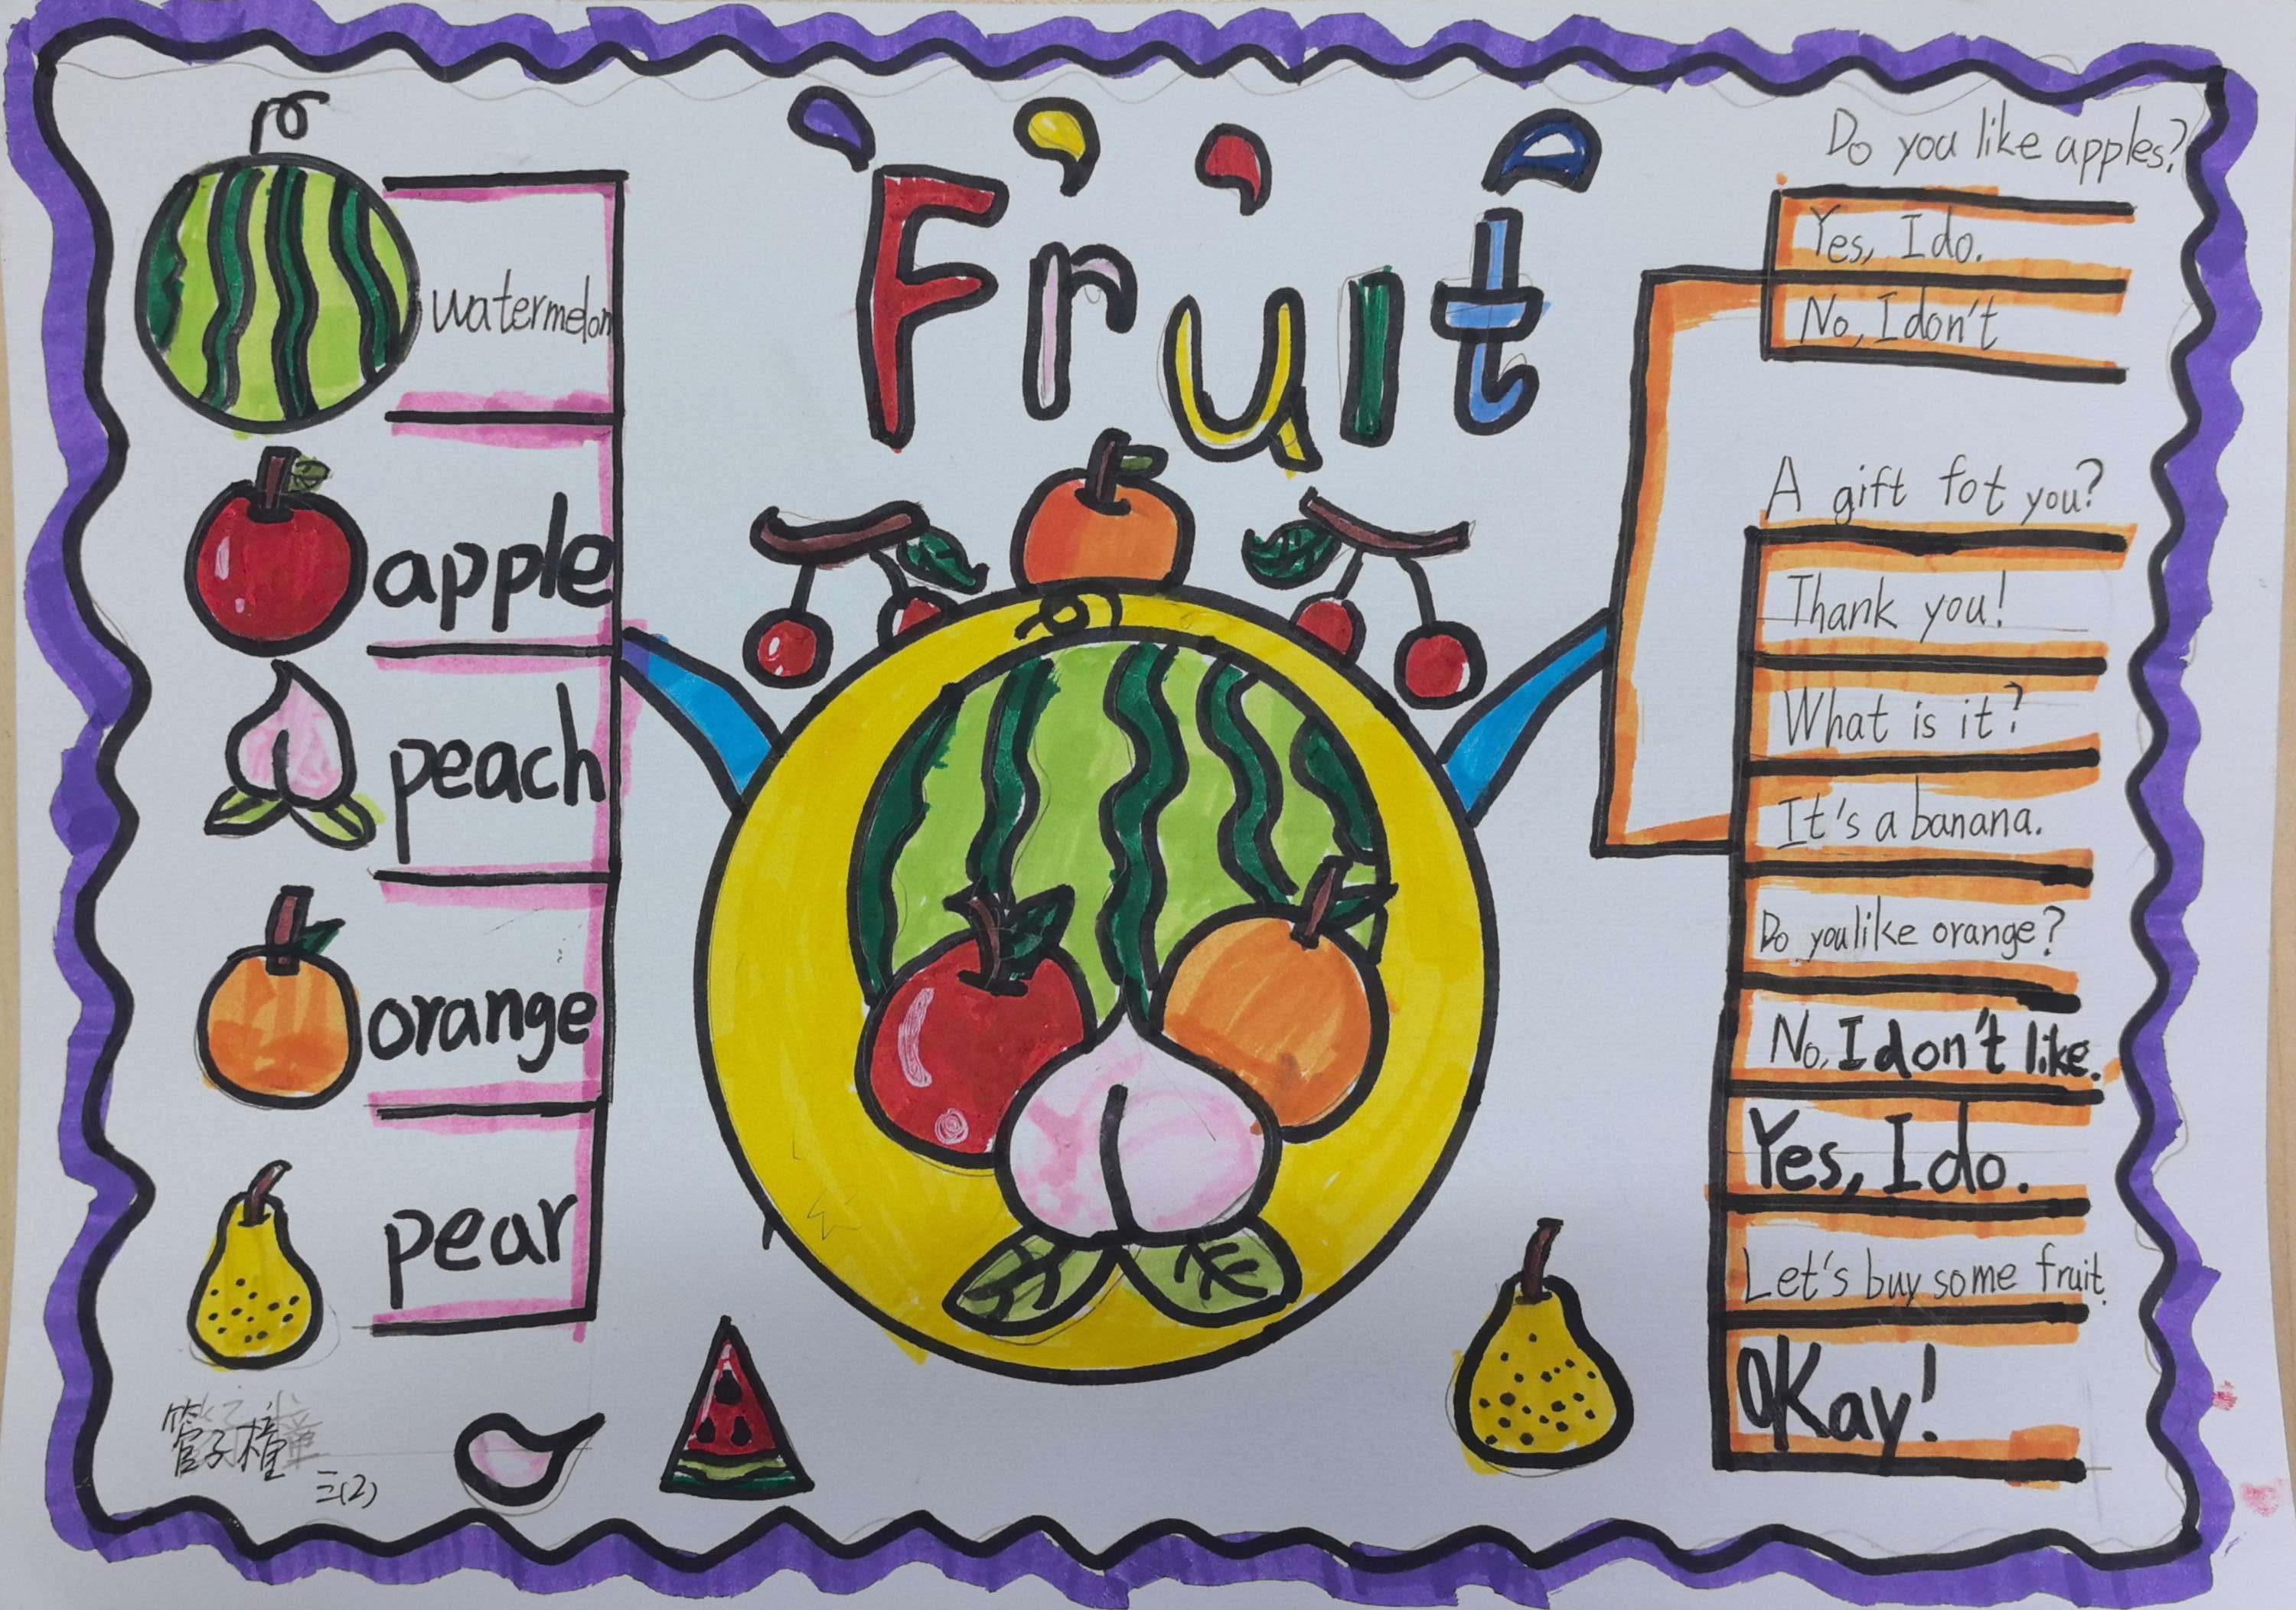 Fruit
watermelon
apple
peach
orange
pear
管子橦
三(2)
Do you like apples?
Yes, I do.
No, I don't
A gift fot you?
Thank you!
What is it?
It's a banana.
Do you like orange?
No, I don't like.
Yes, I do.
Let's buy some fruit.
OKay!